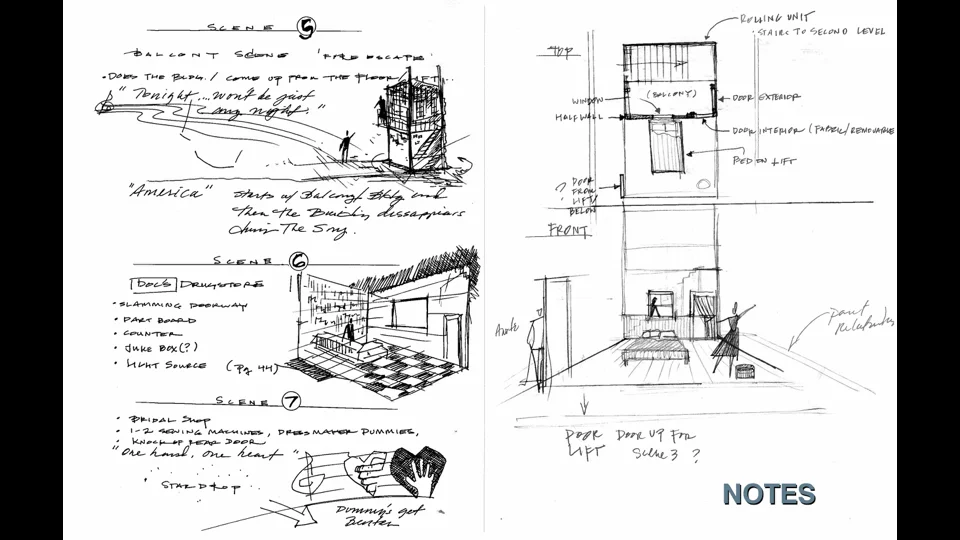 SCENE 5
BALCONY SCENE 'FIRE ESCAPE'
• DOES THE BLDG. / COME UP FROM THE FLOOR/LIFT...
"Tonight ... won't be just
any night."
"America" starts w/ Balcony Bldg and
then the Building dissappears
during The Song.
SCENE 6
DOC'S DRUGSTORE
• SLAMMING DOORWAY
• DART BOARD
• COUNTER
• JUKE BOX (?)
• LIGHT SOURCE (Pg 44)
SCENE 7
• BRIDAL SHOP
• 1-2 SEWING MACHINES, DRESSMAKER DUMMIES,
• KNOCK OF REAR DOOR
"One hand, one heart"
STAR DROP
Dummy's get
TOP
ROLLING UNIT
• STAIRS TO SECOND LEVEL
(BALCONY)
WINDOW
HALF WALL
DOOR EXTERIOR
DOOR INTERIOR (FABRIC/REMOVABLE
BED ON LIFT
? DOOR
FROM
LIFT/
BELOW
FRONT
DOOR
LIFT
DOOR UP FOR
Scene 3 ?
NOTES